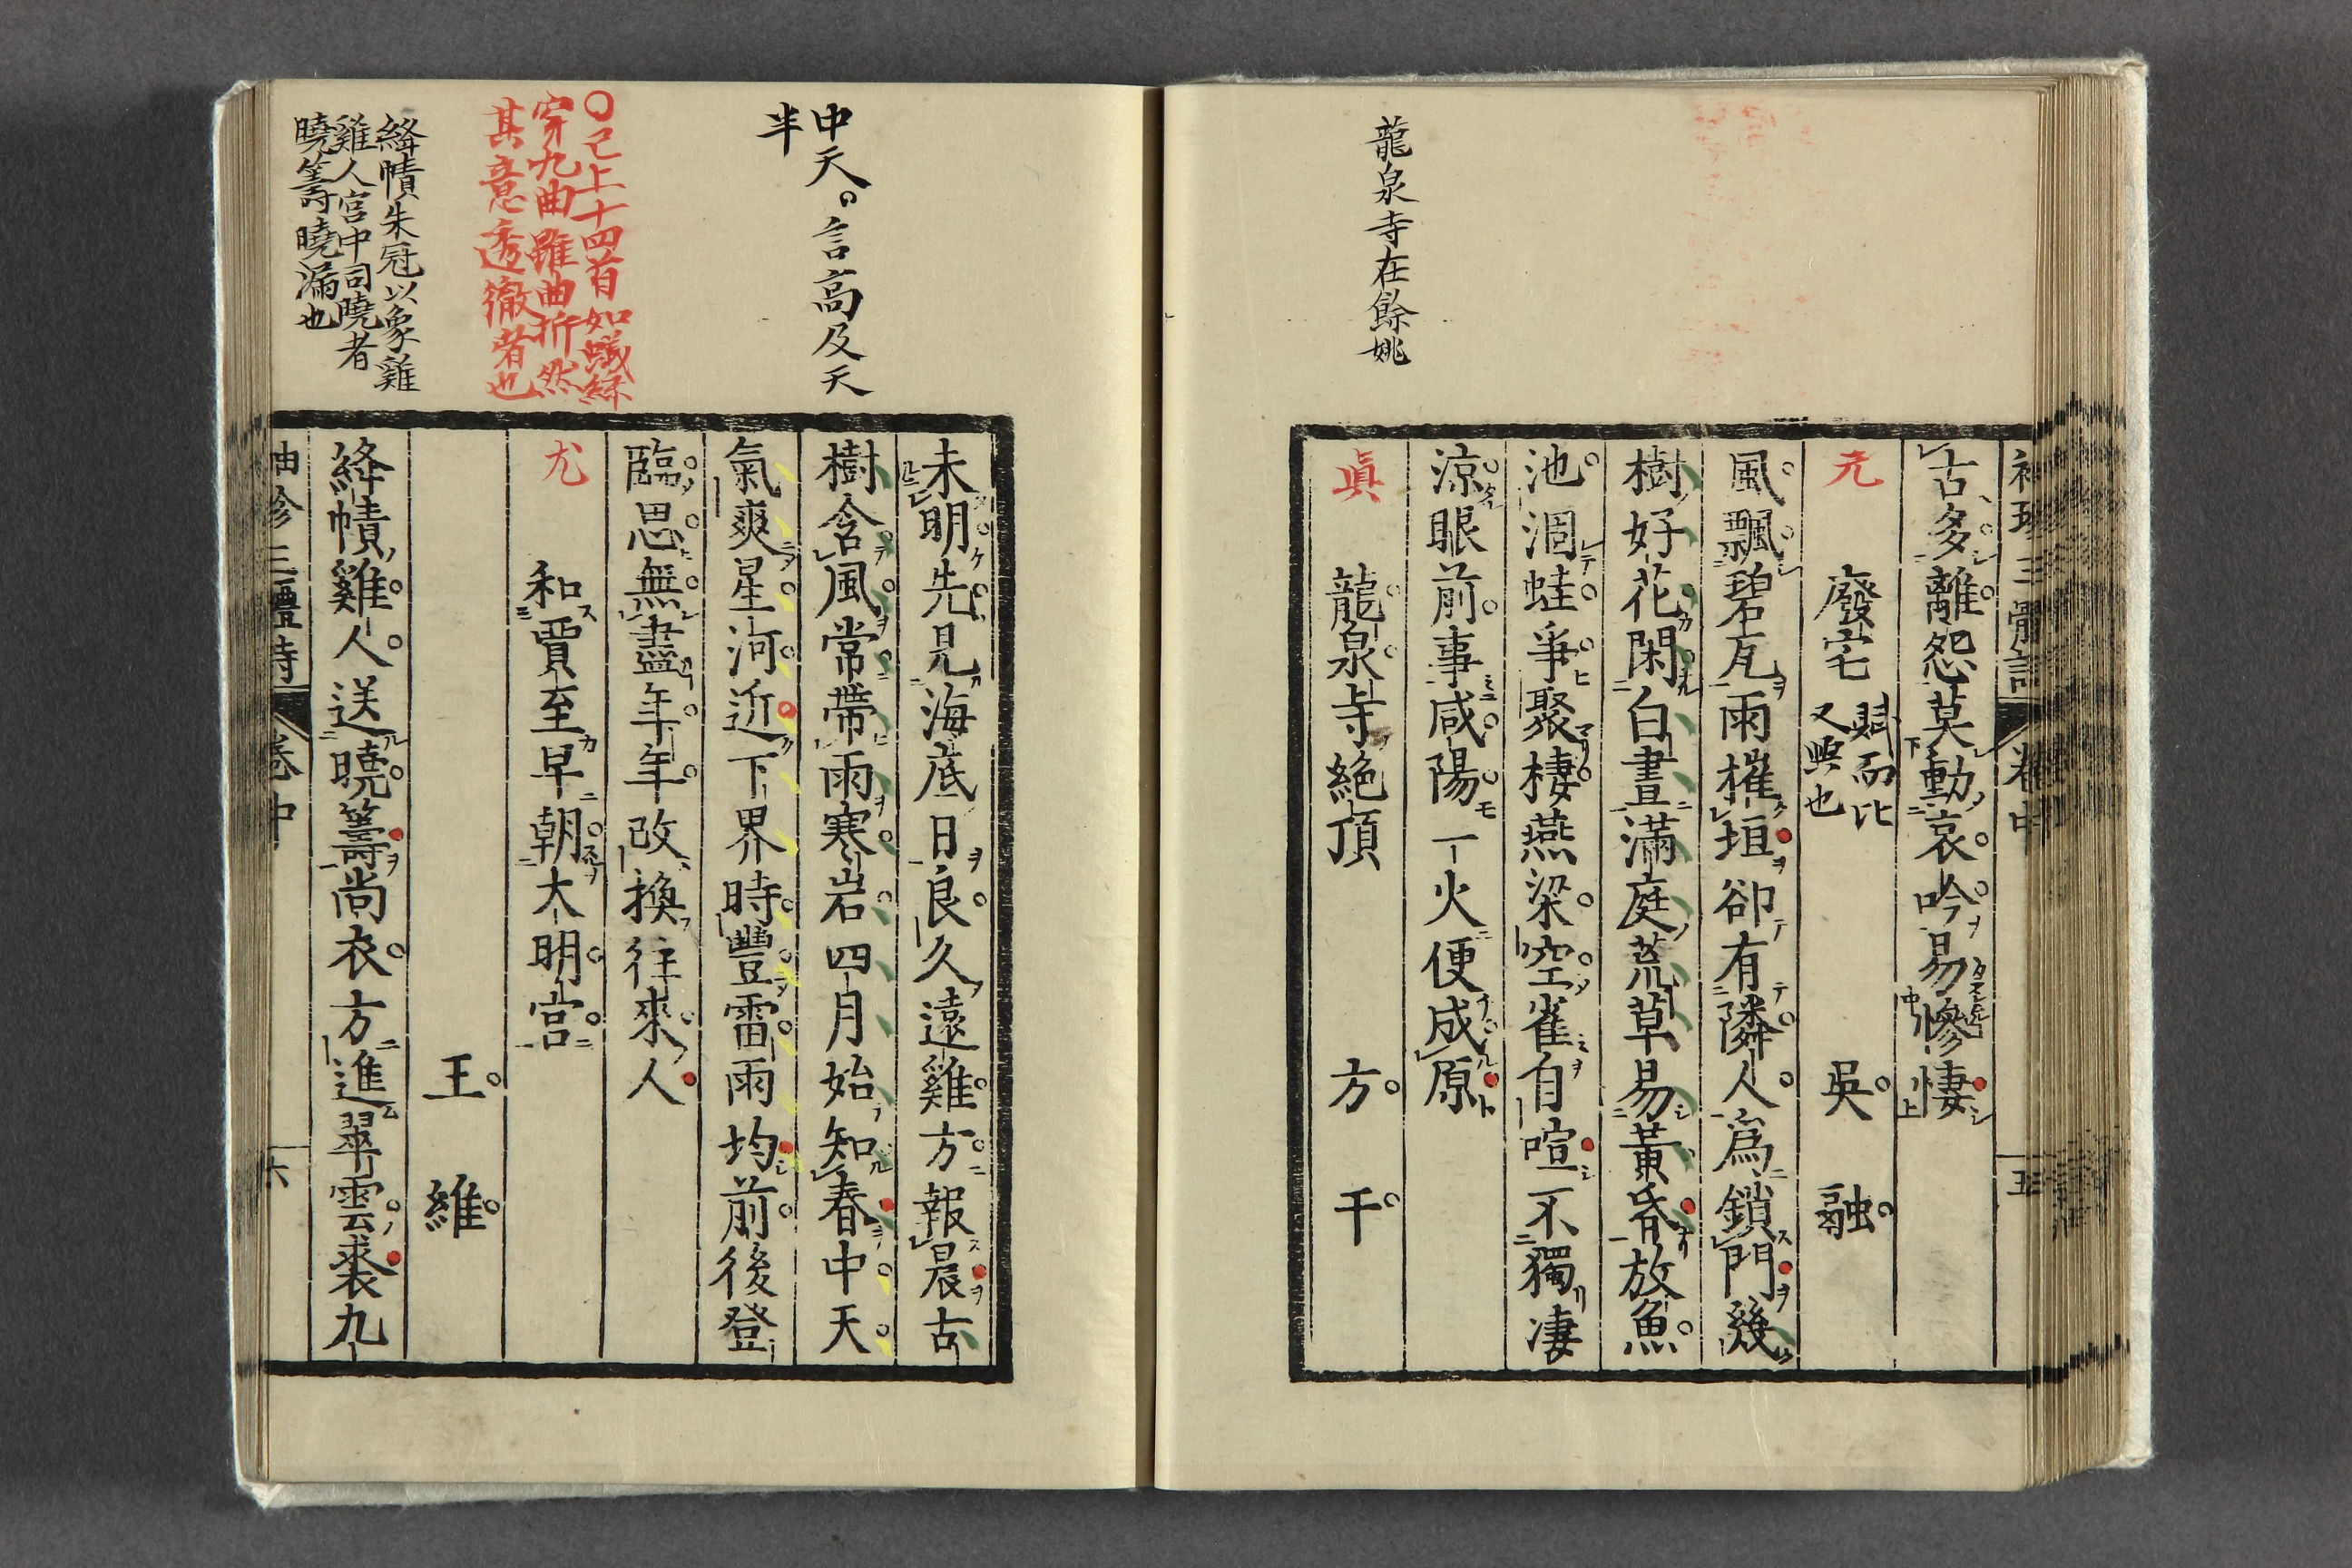 龍泉寺在餘姚
古多離怨莫動哀吟易慘悽
元
廢宅
賦而比
又興也
吳融
風飄碧瓦雨摧垣卻有隣人為鎖門幾
樹好花閑白晝滿庭荒草易黃昏放魚
池涸蛙爭聚棲燕梁空雀自喧不獨淒
涼眼前事咸陽一火便成原
眞
龍泉寺絶頂
方干
中天言高及天
半
○已上十四首如蟻絲
穿九曲雖曲折然
其意透徹者也
絳幘朱冠以象雞
雞人宮中司曉者
曉籌曉漏也
未明先見海底日良久遠雞方報晨古
樹含風常帶雨寒岩四月始知春中天
氣爽星河近下界時豐雷雨均前後登
臨思無盡年年改換往來人
尤
和賈至早朝大明宮
王維
絳幘雞人送曉籌尚衣方進翠雲裘九
卷中
六